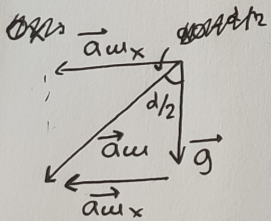 a⃗ш_x
α/2
a⃗ш
g⃗
a⃗ш_x